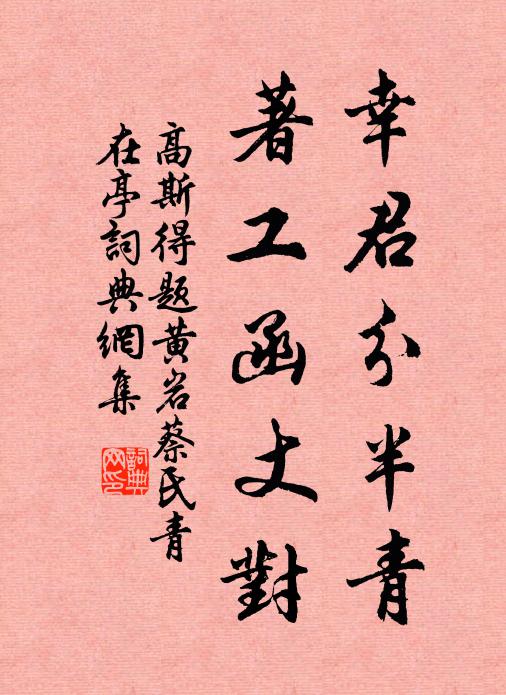 幸君分半青
著工函丈對
高斯得題黄岩蔡氏青
在亭詞典網集
詞典网印